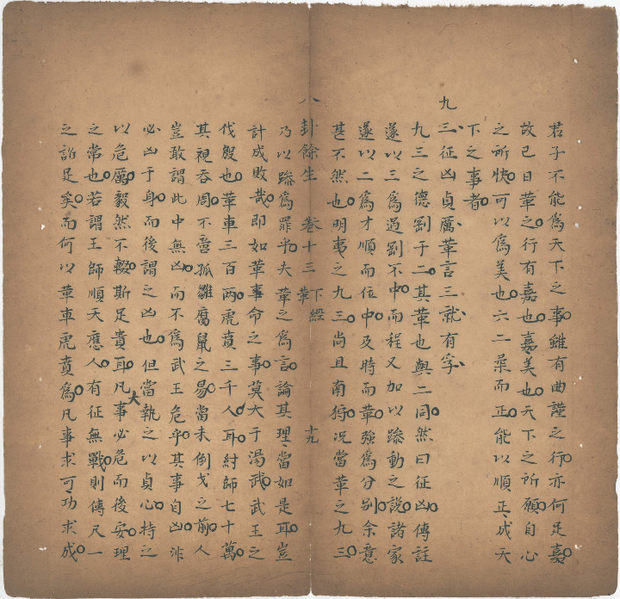 君子不能為天下之事雖有曲謹之行亦何足嘉
故已日革之行有嘉也嘉美也天下之所願自心
之所快可以為美也六二柔而正能以順正成天
下之事者
九三征凶貞厲革言三就有孚
九三之德劉于二其革也與二同然曰征凶傳註
遂以三為過劉不中而程又加以躁動之說諸家
遂以二為才順而位中及時而革強為分別余意
甚不然也明夷之九三尚且南狩況當革之九三
八卦餘生 卷十三 下經 革 十九
乃以躁為罪乎夫革之為言論其理當如是耳豈
計成敗哉即如革事命之事莫大于湯武武王之
伐殷也革車三百兩虎賁三千人耳紂師七十萬
其視吞周不啻孤雛腐鼠之易當未倒戈之前人
豈敢謂此中無凶而不為武王危乎其事自凶非
必凶于身而後謂之凶也但當執之以貞心持之
以危厲毅然不輟斯足貴耳凡大事必危而後安理
之常也若謂王師順天應人有征無戰則傳尺一
之詔足矣而何以革車虎賁為凡事求可功求成